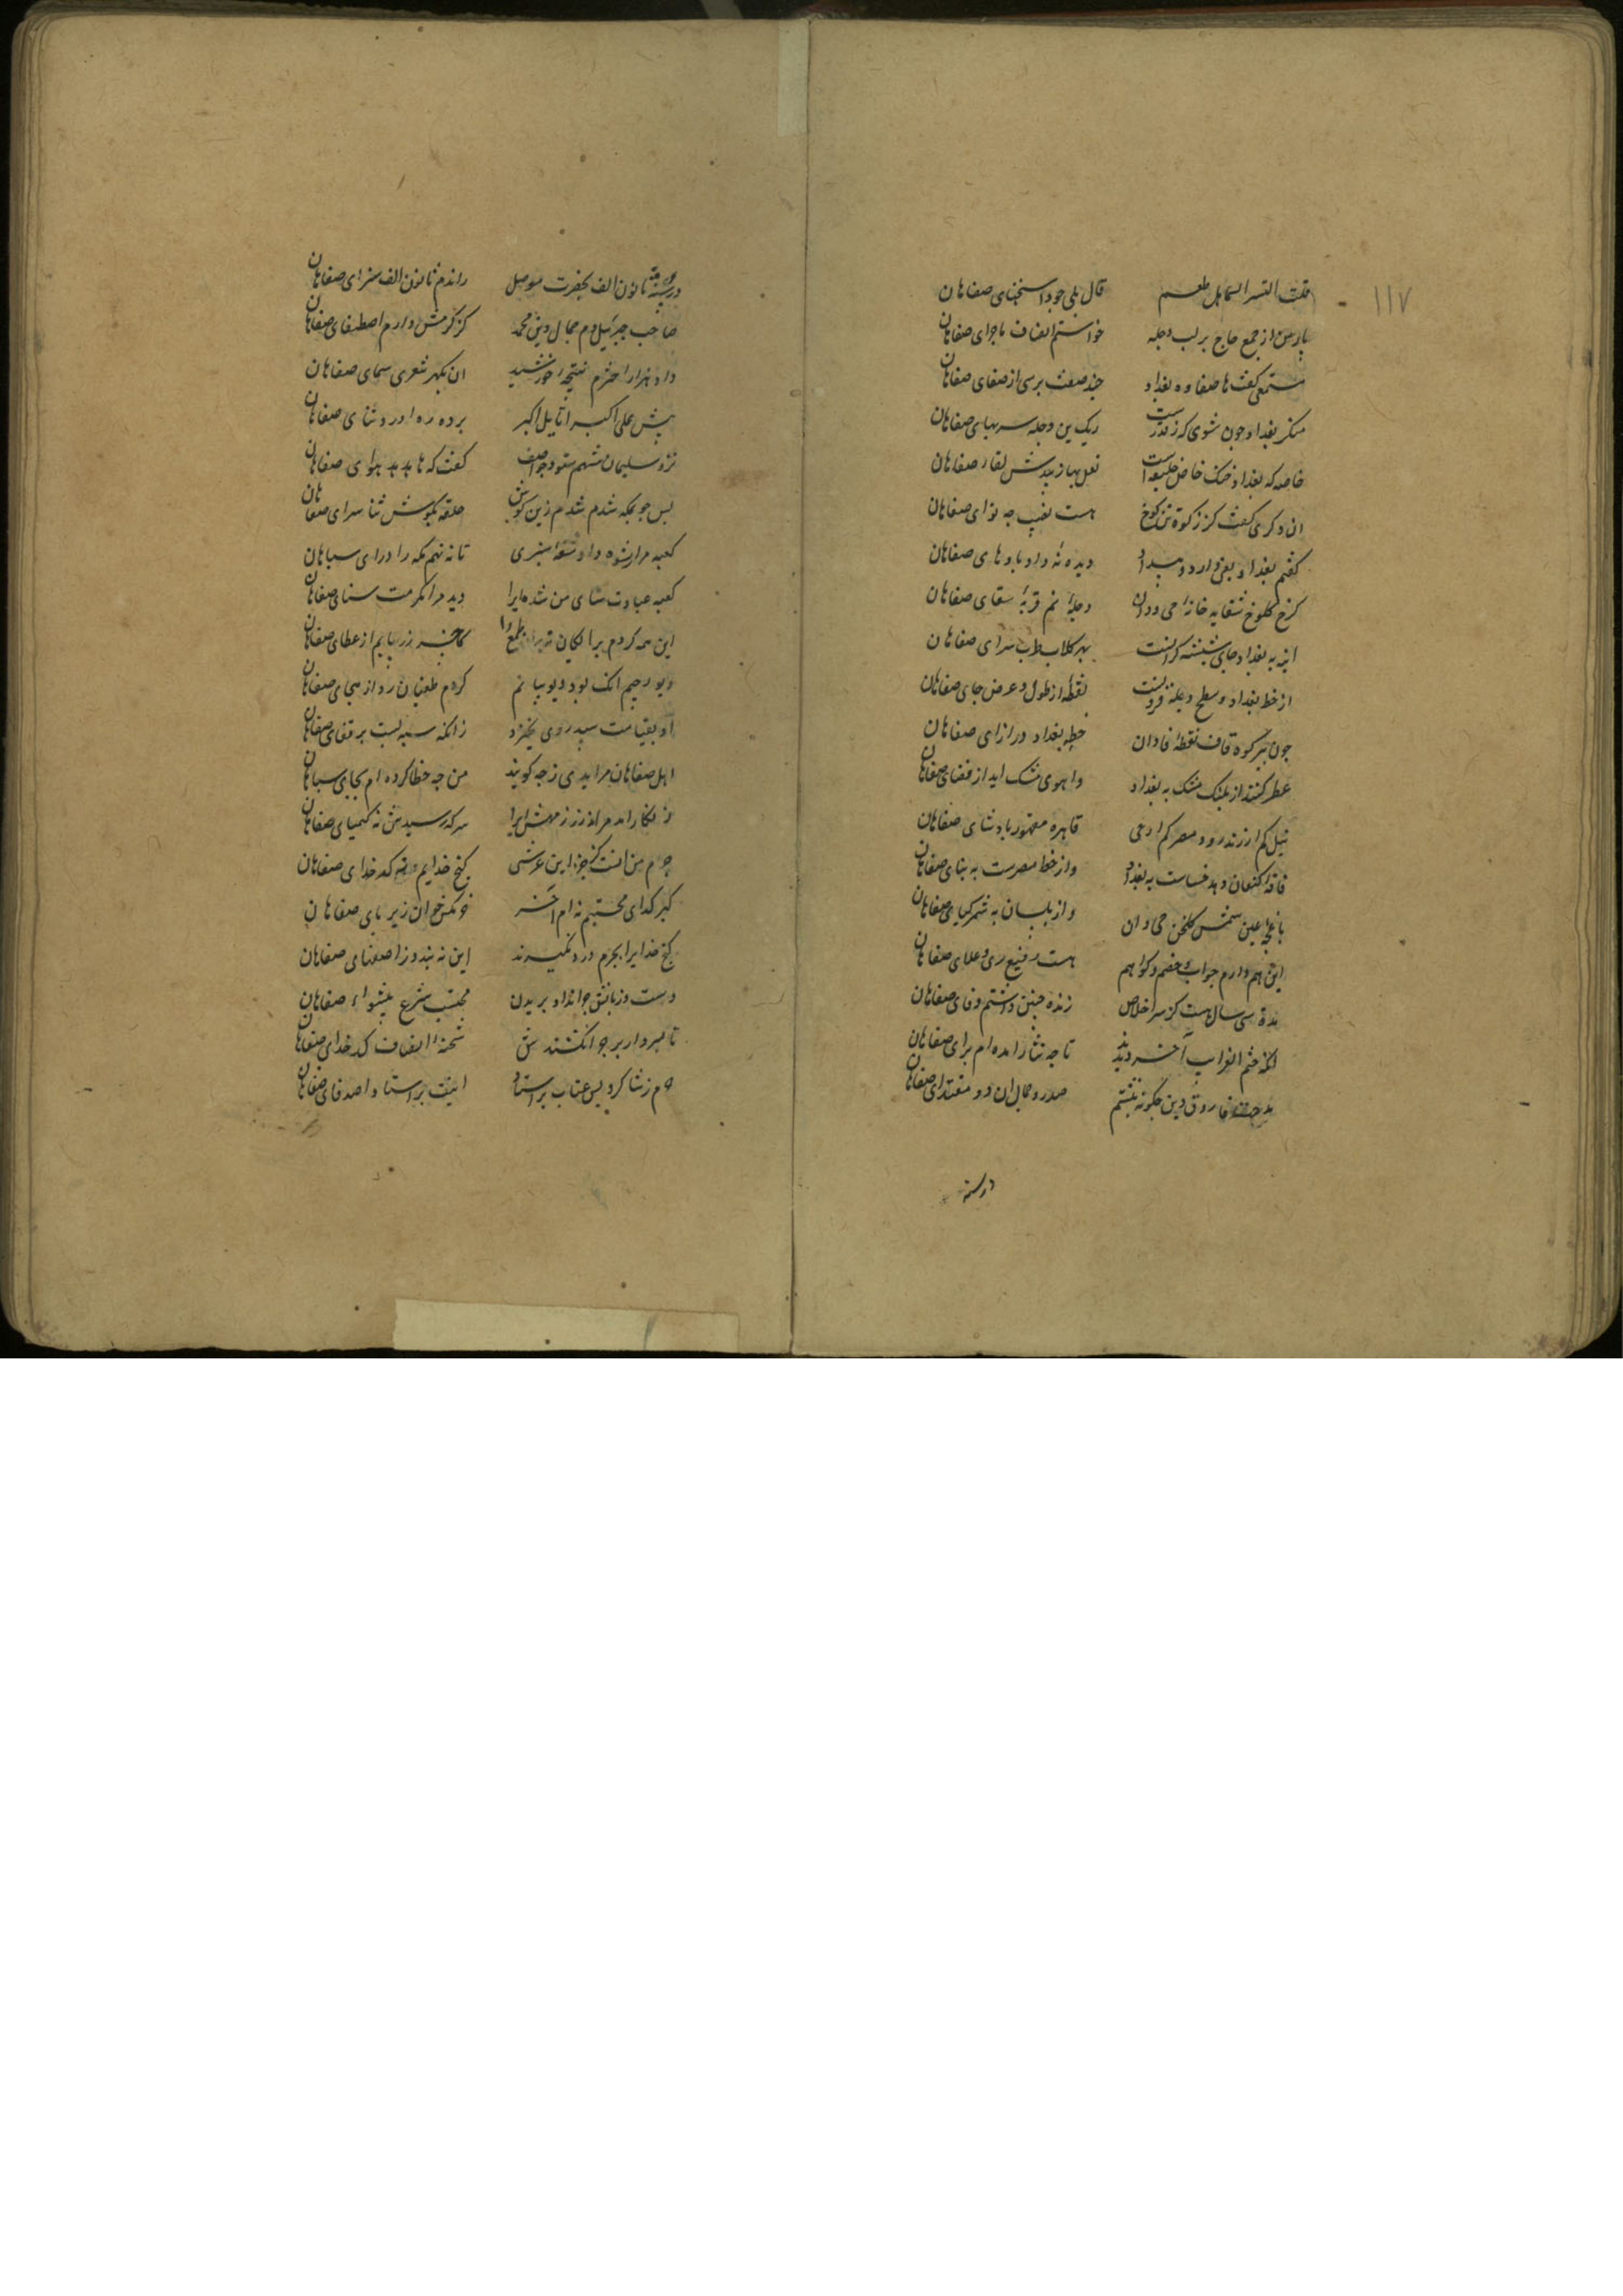 ١١٧
قلت لماء السماء هل طعم قال بلی جود اسخیای صفاهان
بارس از جمع حاج بر لب دجله خواستم انصاف ماجرای صفاهان
مستمعی گفت ها صفاوه بغداد چند صفت پرسی از صفای صفاهان
منکر بغداد چون شوی که ز قدرست ریک بن دجله سربهای صفاهان
خاصه که بغداد خنک خاص خلیفه است نعل بها زیبدش لقاء صفاهان
ان دکری گفت کز زکوة تن کوخ هست نصیب چه نوای صفاهان
گفتم بغداد بغی دارد و بیداد دیده نه داد بادهای صفاهان
کرخ کلوخ سقایه خانه جی دان دجله نم قربه سقای صفاهان
اینه به بغداد جای شیشه کرانست بهر کلاب طرب سرای صفاهان
از خط بغداد و سطح دجله فزونست نقطه از طول و عرض جای صفاهان
چون بر کوه قاف نقطه فا دان خطه بغداد در ازای صفاهان
عطر کنند از پلنک مشک به بغداد واهوی مشک اید از فضای صفاهان
نیل کم از زنده رود و مصر کم از جی قاهره مقهور پادشای صفاهان
فاقه کنعان دهد خساست بغداد واز خط مصرست به بنای صفاهان
باغچه عین شمس کلخن جی دان واز بلسان به شمر کیای صفاهان
این هم دارم جواب خصم و کواهم هست رفیع ری و علای صفاهان
مدة سی سال هست کز سر اخلاص زنده چنین داشتم وفای صفاهان
انکه ختم الغرایب آخر دیدند تا چه ثنا رانده ام برای صفاهان
مدحت فاروق دین چکونه نبشتم صدر و جمال ان دو مقتدای صفاهان
در سنه
در سنه ثانون الف بحضرت موصل راندم ثانون الف سزای صفاهان
صاحب جبرئیل دم جمال دین محمد کز کرمش دارم اصطفای صفاهان
داد هزار اخترم نتیجه خورشید ان بکهر شعری سمای صفاهان
پیش علی اکبر اتابک اکبر برده ره اورد و ثنای صفاهان
نزد سلیمان شهم ستود چو اصف گفت که ها هدهد هوای صفاهان
پس چو بمکه شدم شدم ز بن کوش حلقه بکوش ثنا سرای صفاهان
کعبه مرا رشوه داد شقه سبزی تا ننهم مکه را ورای سپاهان
کعبه عبادت ستای من شده ایرا دید مرا مکرمت ستای صفاهان
این همه کردم برایکان نه بران طمع را کافسر زر یابم از عطای صفاهان
دیو رجیم انک بود دیو بیانم کردم طغیان زد از هجای صفاهان
او بقیامت سپید روی نخیزد زانکه سیه بست بر قفای صفاهان
اهل صفاهان مرا بدی ز چه کویند من چه خطا کرده ام بجای سپاهان
سرکه رسیدش نه کیمیای صفاهان
جرم من انست کز خزاین عرشی کنج خدایم نه کدخدای صفاهان
کیر کدای محتشم نه ام اخر خرمکس خوان زیربای صفاهان
کنج خدا را بجرم درد نکیرند این نه پسندد ز اصفیای صفاهان
دست و زبانش چرا نداد بریدن محتسب شرع پیشواء صفاهان
تا بسر دار بر چرا نکشندش شحنه انصاف کدخدای صفاهان
جرم ز شاکرد پس عتاب بر استاد اینت بد استاد اصدقای صفاهان